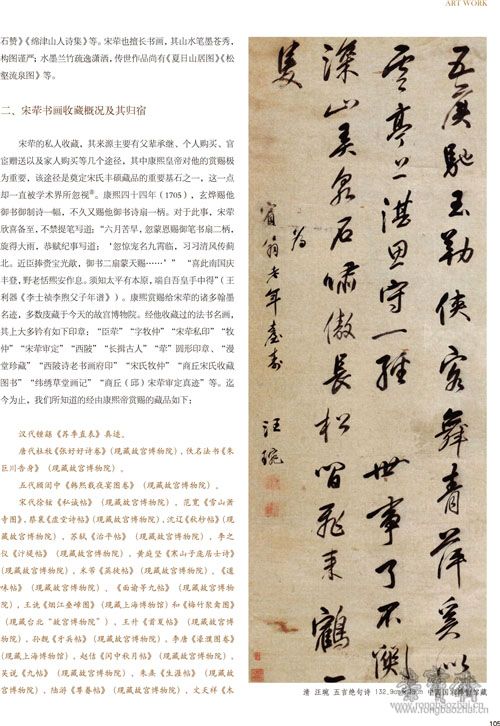 ART WORK
石赞》《绵津山人诗集》等。宋荦也擅长书画，其山水笔墨苍秀，
构图谨严；水墨兰竹疏逸潇洒，传世作品尚有《夏日山居图》《松
壑流泉图》等。
二、宋荦书画收藏概况及其归宿
宋荦的私人收藏，其来源主要有父辈承继、个人购买、官
宦赠送以及家人购买等几个途径，其中康熙皇帝对他的赏赐极
为重要，该途径是奠定宋氏丰硕藏品的重要基石之一，这一点
却一直被学术界所忽视。康熙四十四年（1705），玄烨赐他
御书御制诗一幅，不久又赐他御书诗扇一柄。对于此事，宋荦
欣喜备至，不禁提笔写道：“六月苦旱，忽蒙恩赐御笔书扇二柄，
旋得大雨，恭赋纪事写道：‘忽惊宠名九霄临，习习清风传蓟
北。近臣捧赍宝光歊，御书二扇蒙天赐……’”“喜此南国庆
丰登，野老恬熙安作息。须知太平有本原，端自吾皇手中得”（王
利器《李士祯李煦父子年谱》）。康熙赏赐给宋荦的诸多翰墨
名迹，多数庋藏于今天的故宫博物院。经他收藏过的法书名画，
其上大多钤有如下印章：“臣荦”“字牧仲”“宋荦私印”“牧
仲”“宋荦审定”“西陂”“长揖古人”“荦”圆形印章、“漫
堂珍藏”“西陂诗老书画府印”“宋氏牧仲”“商丘宋氏收藏
图书”“纬绣草堂画记”“商丘（邱）宋荦审定真迹”等。迄
今为止，我们所知道的经由康熙帝赏赐的藏品如下：
汉代钟繇《荐季直表》真迹。
唐代杜牧《张好好诗卷》（现藏故宫博物院），佚名法书《朱
巨川告身》（现藏故宫博物院）。
五代顾闳中《韩熙载夜宴图卷》（现藏故宫博物院）。
宋代徐铉《私诚帖》（现藏故宫博物院），范宽《雪山萧
寺图》，蔡襄《虚堂诗帖》（现藏故宫博物院），沈辽《秋杪帖》（现
藏故宫博物院），苏轼《治平帖》（现藏故宫博物院），李之
仪《汴堤帖》（现藏故宫博物院），黄庭坚《寒山子庞居士诗》
（现藏故宫博物院），米芾《英枝帖》（现藏故宫博物院），《道
味帖》（现藏故宫博物院），《面谕等九帖》（现藏故宫博物
院），王诜《烟江叠嶂图》（现藏上海博物馆）和《梅竹聚禽图》
（现藏台北“故宫博物院”），王升《首夏帖》（现藏故宫博
物院），孙觌《牙兵帖》（现藏故宫博物院），李唐《濠濮图卷》
（现藏上海博物馆），赵佶《闰中秋月帖》（现藏故宫博物院），
吴说《九帖》（现藏故宫博物院），朱熹《生涯帖》（现藏故
宫博物院），陆游《尊眷帖》（现藏故宫博物院），文天祥《木
五侯驰玉勒侠客舞青萍奚似
云亭上湛思守一经 世事了不闻
深山美泉石啸傲长松间飞来鹤一
隻
为
宾翁老年台寿
汪琬
清 汪琬 五言绝句诗 132.9cm×45cm 中国国家博物馆藏
荣宝斋
www.rongbaozhai.cn
105